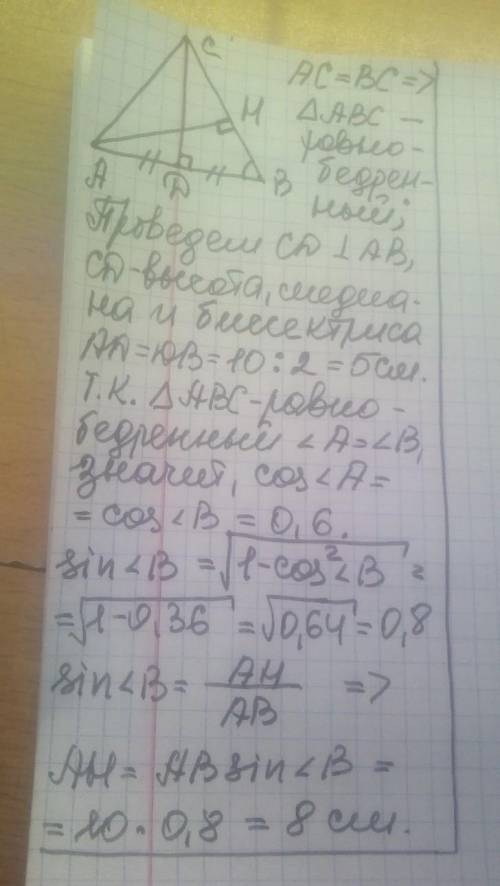 C
H
A
D
B
AC = BC =>
△ABC —
равно-
бедрен-
ный;
Проведем CD ⊥ AB,
CD - высота, медиа-
на и биссектриса
AD = DB = 10 : 2 = 5 см.
Т.К. △ABC - равно -
бедренный ∠A = ∠B,
значит, cos∠A =
= cos∠B = 0,6.
sin∠B = √1-cos²∠B =
= √1-0,36 = √0,64 = 0,8
sin∠B = AH/AB =>
AH = AB sin∠B =
= 10 · 0,8 = 8 см.